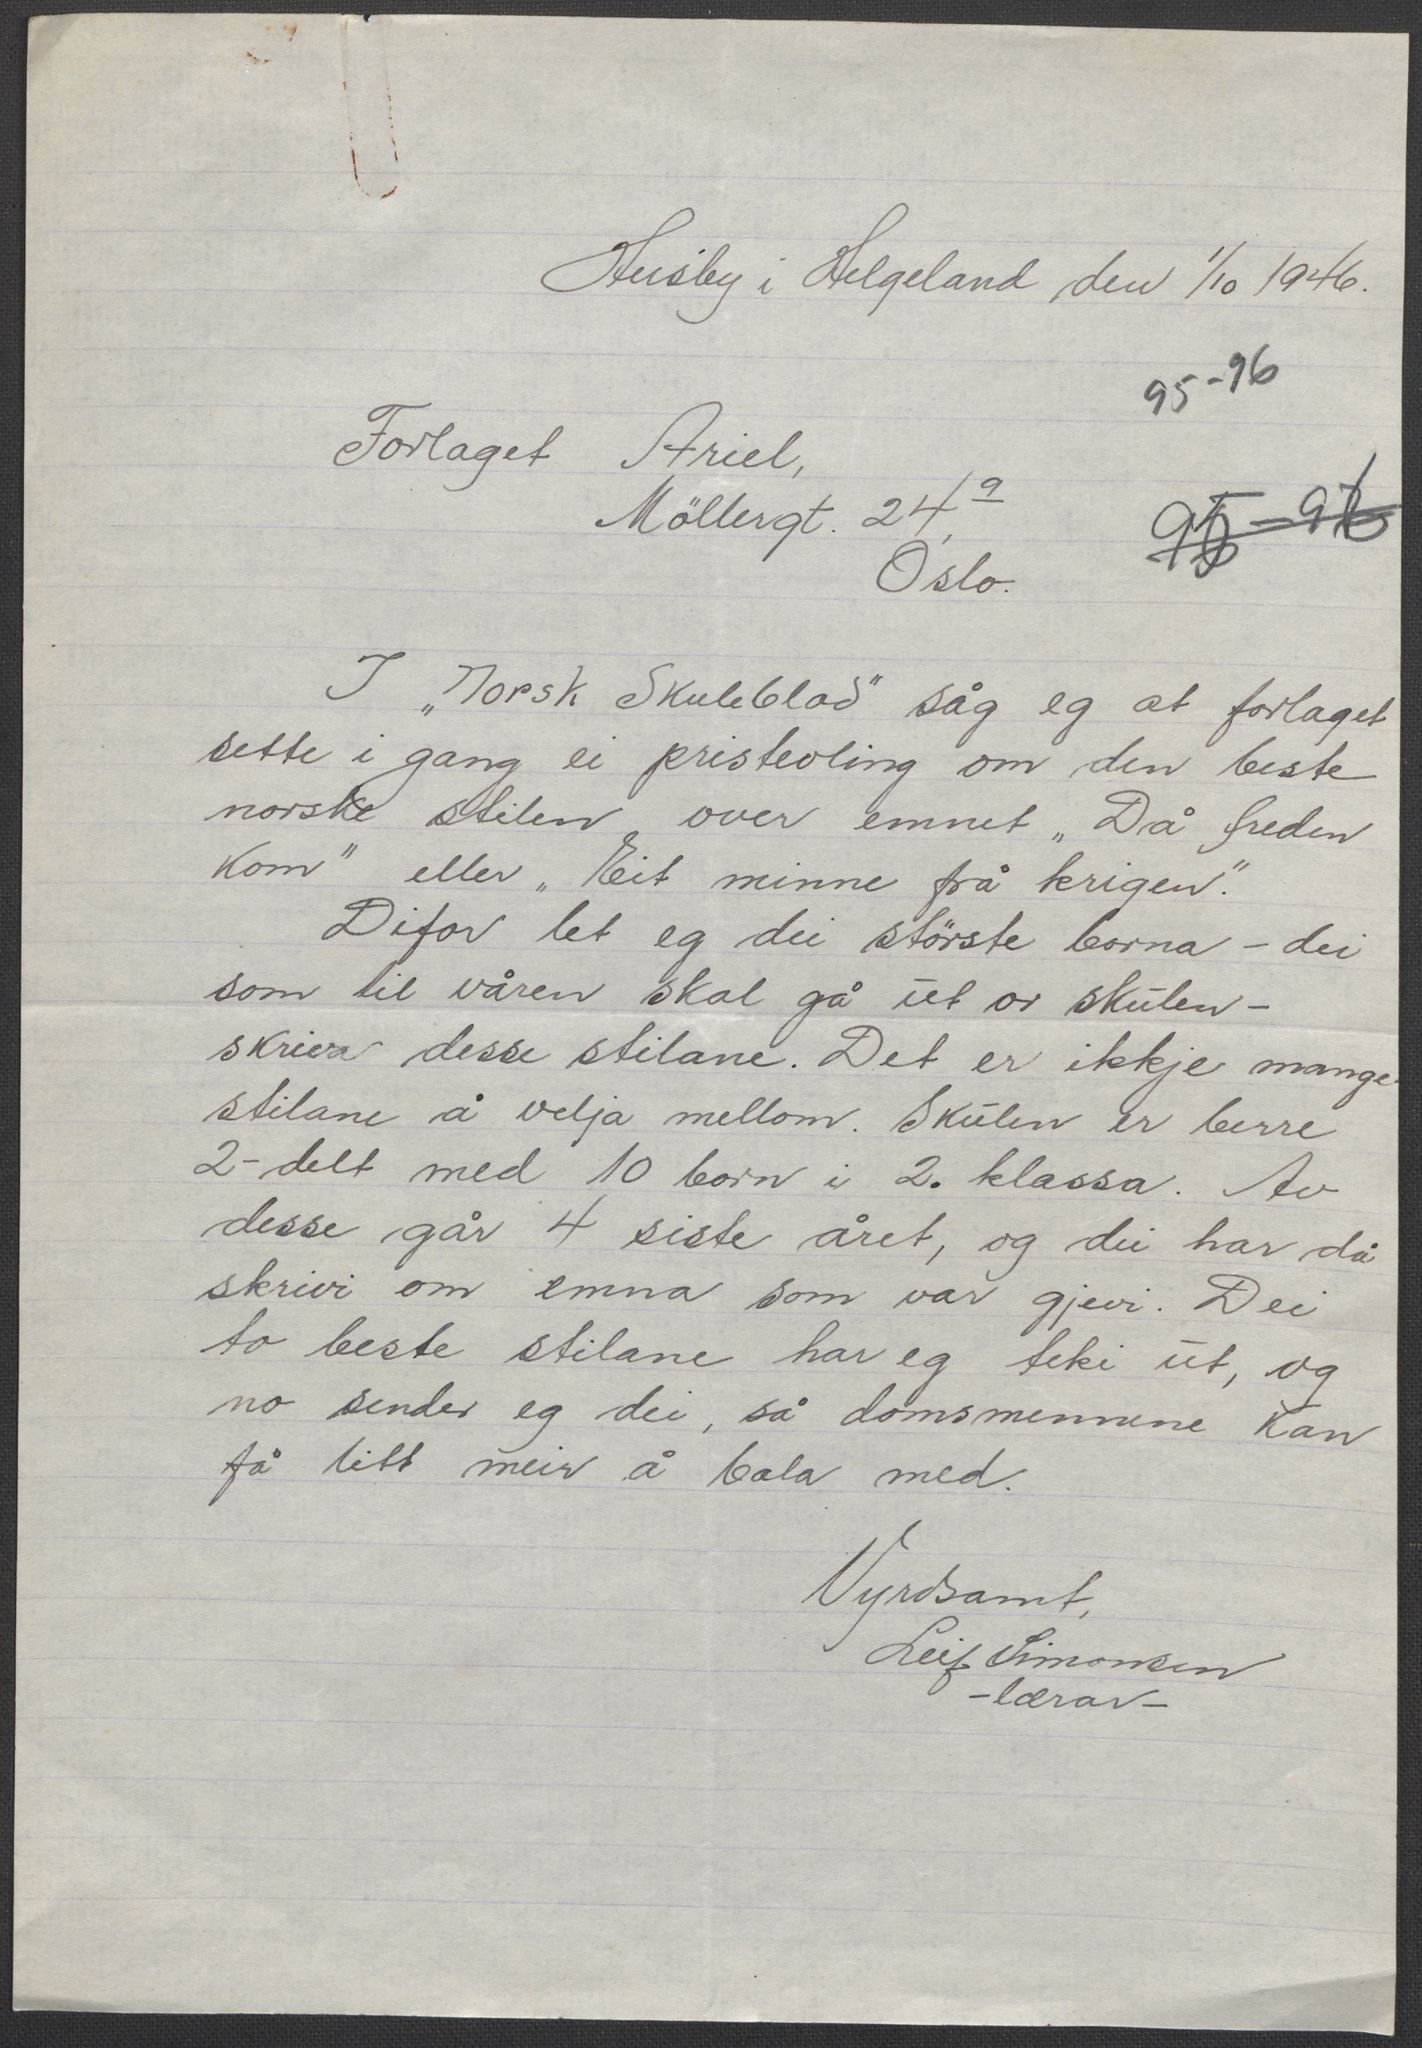 Husby i Helgeland den 1/10 1946.
95-96
Forlaget Ariel,
Möllergt. 24,a
Oslo.
I „Norsk Skuleblad" såg eg at forlaget
sette i gang ei pristevling om den beste
norske stilen over emnet „Då freden
kom" eller „Eit minne frå krigen".
Difor let eg dei störste borna - dei
som til våren skal gå ut or skulen -
skriva desse stilane. Det er ikkje mange
stilane å velja mellom. Skulen er berre
2-delt med 10 born i 2. klassa. Av
desse går 4 siste året, og dei har då
skrivi om emna som var gjevi. Dei
to beste stilane har eg teki ut, og
no sender eg dei, så domsmennene kan
få litt meir å bala med.
Vyrdsamt,
Leif Simonsen
- lærar -